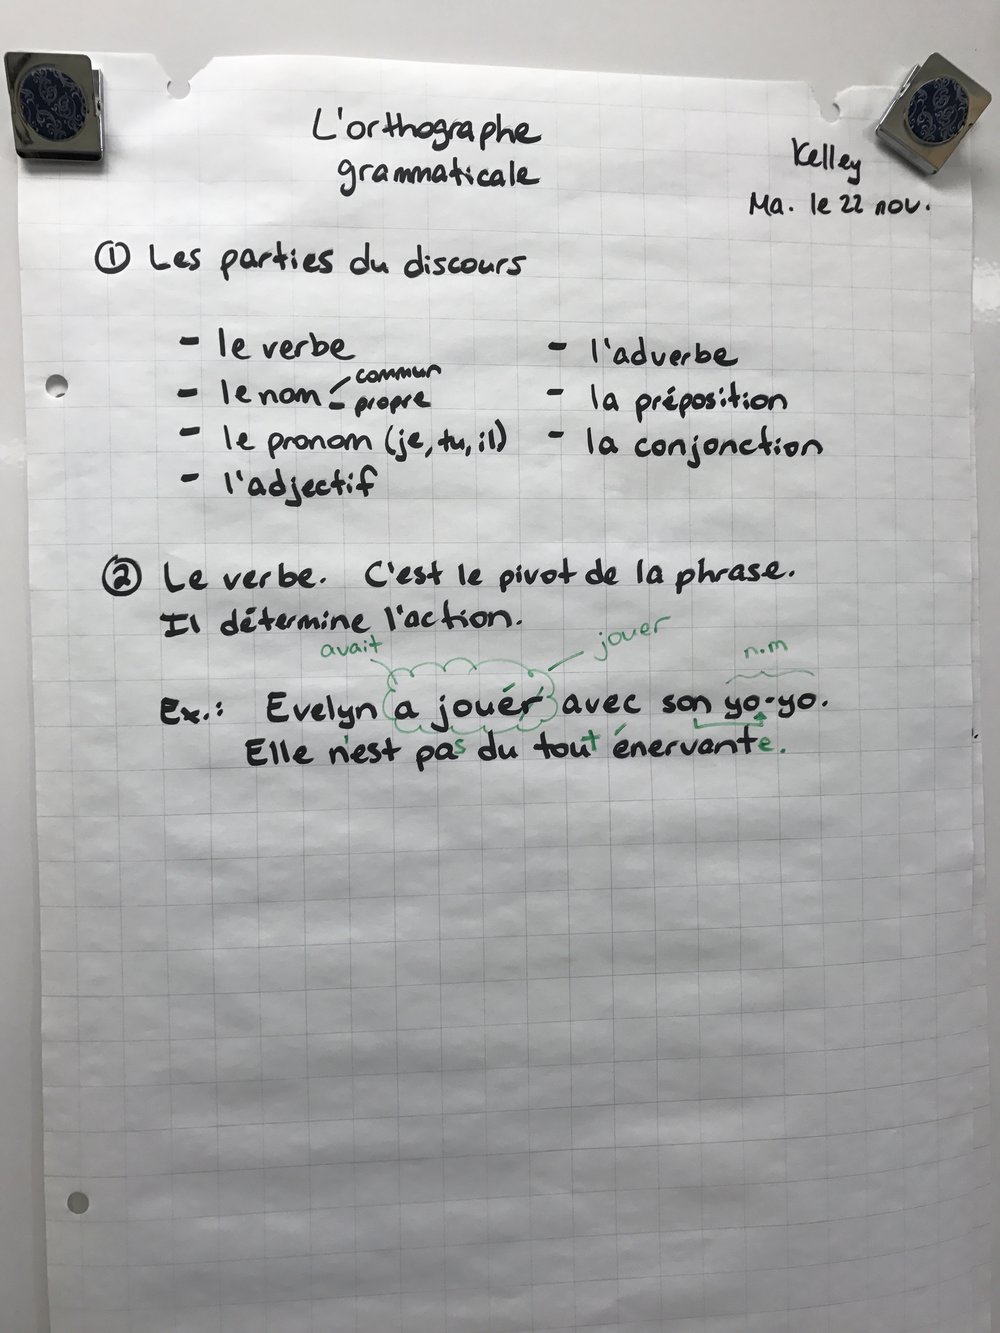 L'orthographe
grammaticale
Kelley
Ma. le 22 nov.
① Les parties du discours
- le verbe
- le nom commun
propre
- le pronom (je, tu, il)
- l'adjectif
- l'adverbe
- la préposition
- la conjonction
② Le verbe. C'est le pivot de la phrase.
Il détermine l'action.
avait jouer n.m
Ex.: Evelyn a jouér avec son yo-yo.
Elle n'est pas du tout énervante.